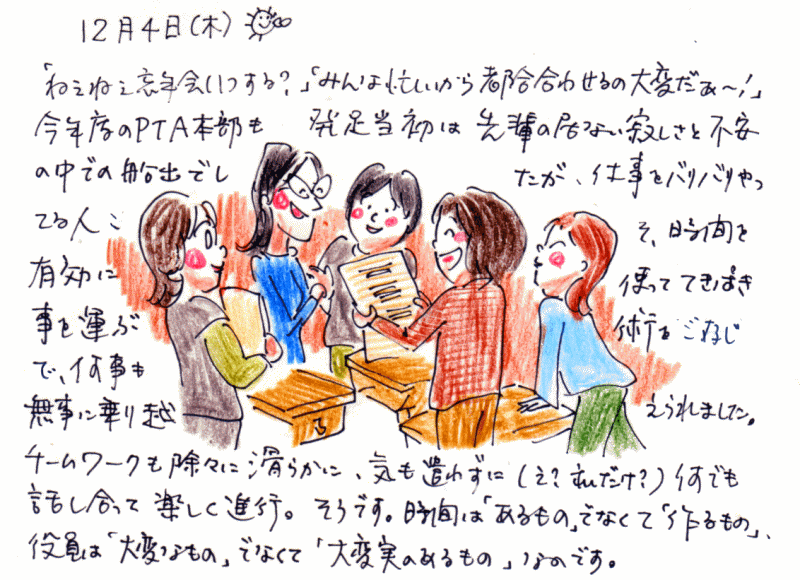 12月4日(木)
「ねえねえ忘年会いつする?」「みんな忙しいから都合合わせるの大変だぁ〜!」
今年度のPTA本部も 発足当初は先輩の居ない寂しさと不安
の中での船出でし たが、仕事をバリバリやっ
てる人こ そ、時間を
有効に 使っててきぱき
事を運ぶ 術をご存じ
で、何事も
無事に乗り越 えられました。
チームワークも除々に滑らかに、気も遣わずに(え?私だけ?)何でも
話し合って楽しく進行。そうです。時間は「あるもの」でなくて「作るもの」、
役員は「大変なもの」でなくて「大変実のあるもの」なのです。